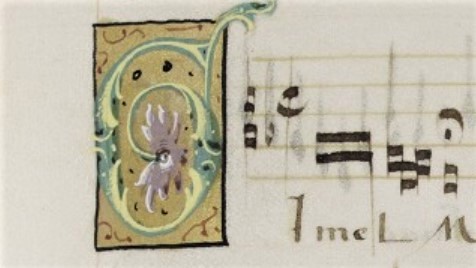 ImeL M